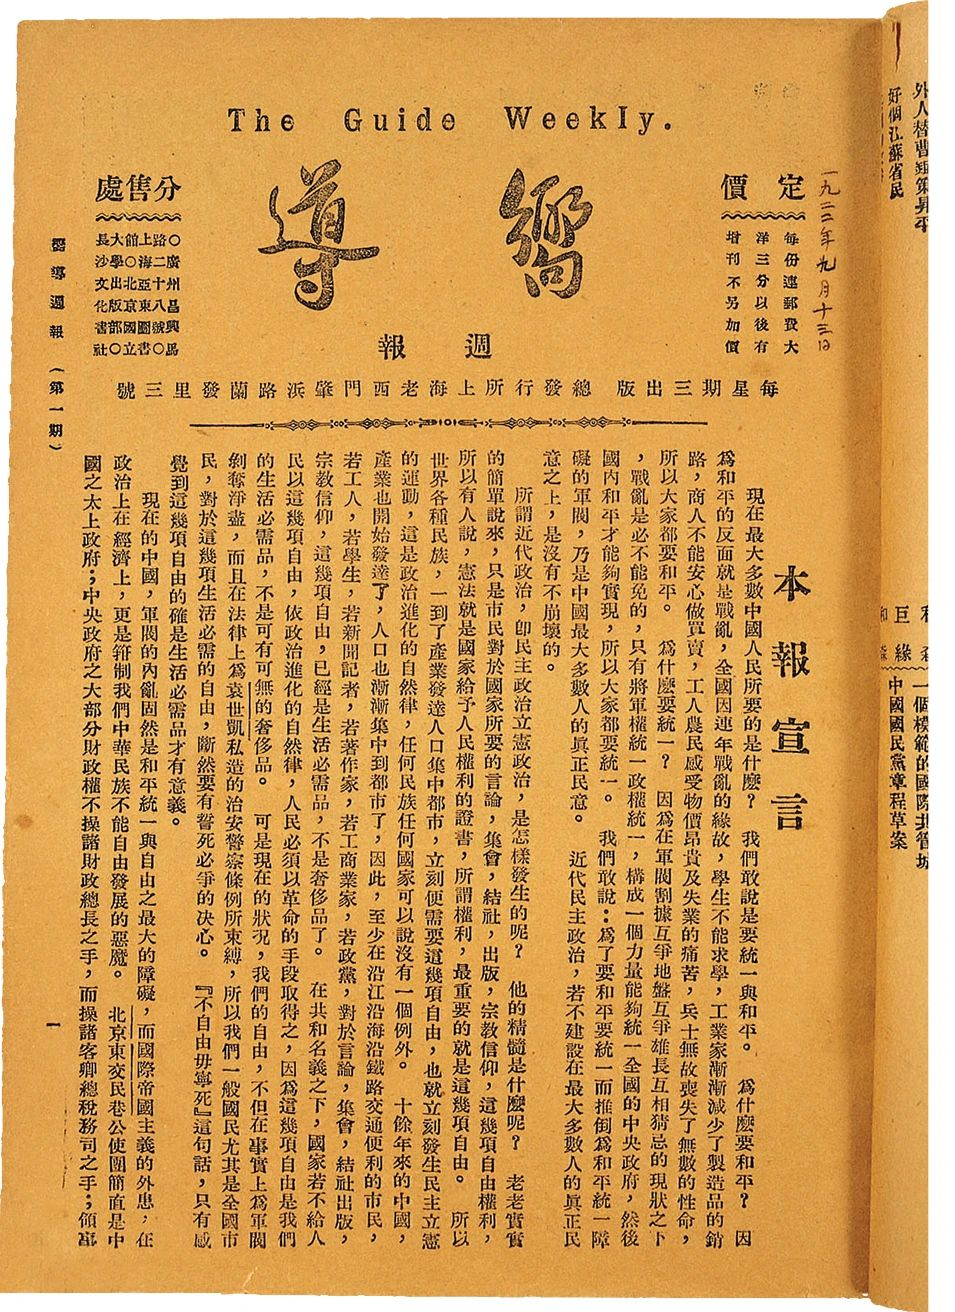 The Guide Weekly.
嚮導
週報
定價
每份連郵費大
洋三分以後有
增刊不另加價
一九二二年九月十三日
分售處
○廣州昌興馬
路二十八號○
上海亞東圖書
館○北京國立
大學出版部○
長沙文化書社
每星期三出版 總發行所上海老西門肇浜路蘭發里三號
嚮導週報 (第一期)
本報宣言
現在最大多數中國人民所要的是什麽? 我們敢說是要統一與和平。 爲什麽要和平? 因
爲和平的反面就是戰亂,全國因連年戰亂的緣故,學生不能求學,工業家漸漸減少了製造品的銷
路,商人不能安心做買賣,工人農民感受物價昂貴及失業的痛苦,兵士無故喪失了無數的性命,
所以大家都要和平。 爲什麽要統一? 因爲在軍閥割據互爭地盤互爭雄長互相猜忌的現狀之下
,戰亂是必不能免的,只有將軍權統一政權統一,構成一個力量能夠統一全國的中央政府,然後
國內和平才能夠實現,所以大家都要統一。 我們敢說:爲了要和平要統一而推倒爲和平統一障
礙的軍閥,乃是中國最大多數人的眞正民意。 近代民主政治,若不建設在最大多數人的眞正民
意之上,是沒有不崩壞的。
所謂近代政治,卽民主政治立憲政治,是怎樣發生的呢? 他的精髓是什麽呢? 老老實實
的簡單說來,只是市民對於國家所要的言論,集會,結社,出版,宗教信仰,這幾項自由權利,
所以有人說,憲法就是國家給予人民權利的證書,所謂權利,最重要的就是這幾項自由。 所以
世界各種民族,一到了產業發達人口集中都市,立刻便需要這幾項自由,也就立刻發生民主立憲
的運動,這是政治進化的自然律,任何民族任何國家可以說沒有一個例外。 十餘年來的中國,
產業也開始發達了,人口也漸漸集中到都市了,因此,至少在沿江沿海沿鐵路交通便利的市民,
若工人,若學生,若新聞記者,若著作家,若工商業家,若政黨,對於言論,集會,結社出版,
宗教信仰,這幾項自由,已經是生活必需品,不是奢侈品了。 在共和名義之下,國家若不給人
民以這幾項自由,依政治進化的自然律,人民必須以革命的手段取得之,因爲這幾項自由是我們
的生活必需品,不是可有可無的奢侈品。 可是現在的狀況,我們的自由,不但在事實上爲軍閥
剝奪淨盡,而且在法律上爲袁世凱私造的治安警察條例所束縛,所以我們一般國民尤其是全國市
民,對於這幾項生活必需的自由,斷然要有誓死必爭的决心。 『不自由毋寧死』這句話,只有感
覺到這幾項自由的確是生活必需品才有意義。
現在的中國,軍閥的內亂固然是和平統一與自由之最大的障礙,而國際帝國主義的外患,在
政治上在經濟上,更是箝制我們中華民族不能自由發展的惡魔。 北京東交民巷公使團簡直是中
國之太上政府;中央政府之大部分財政權不操諸財政總長之手,而操諸客卿總稅務司之手;領事
一
好個江蘇省民
一個模範的國際
中國國民黨章程草案
巨緣